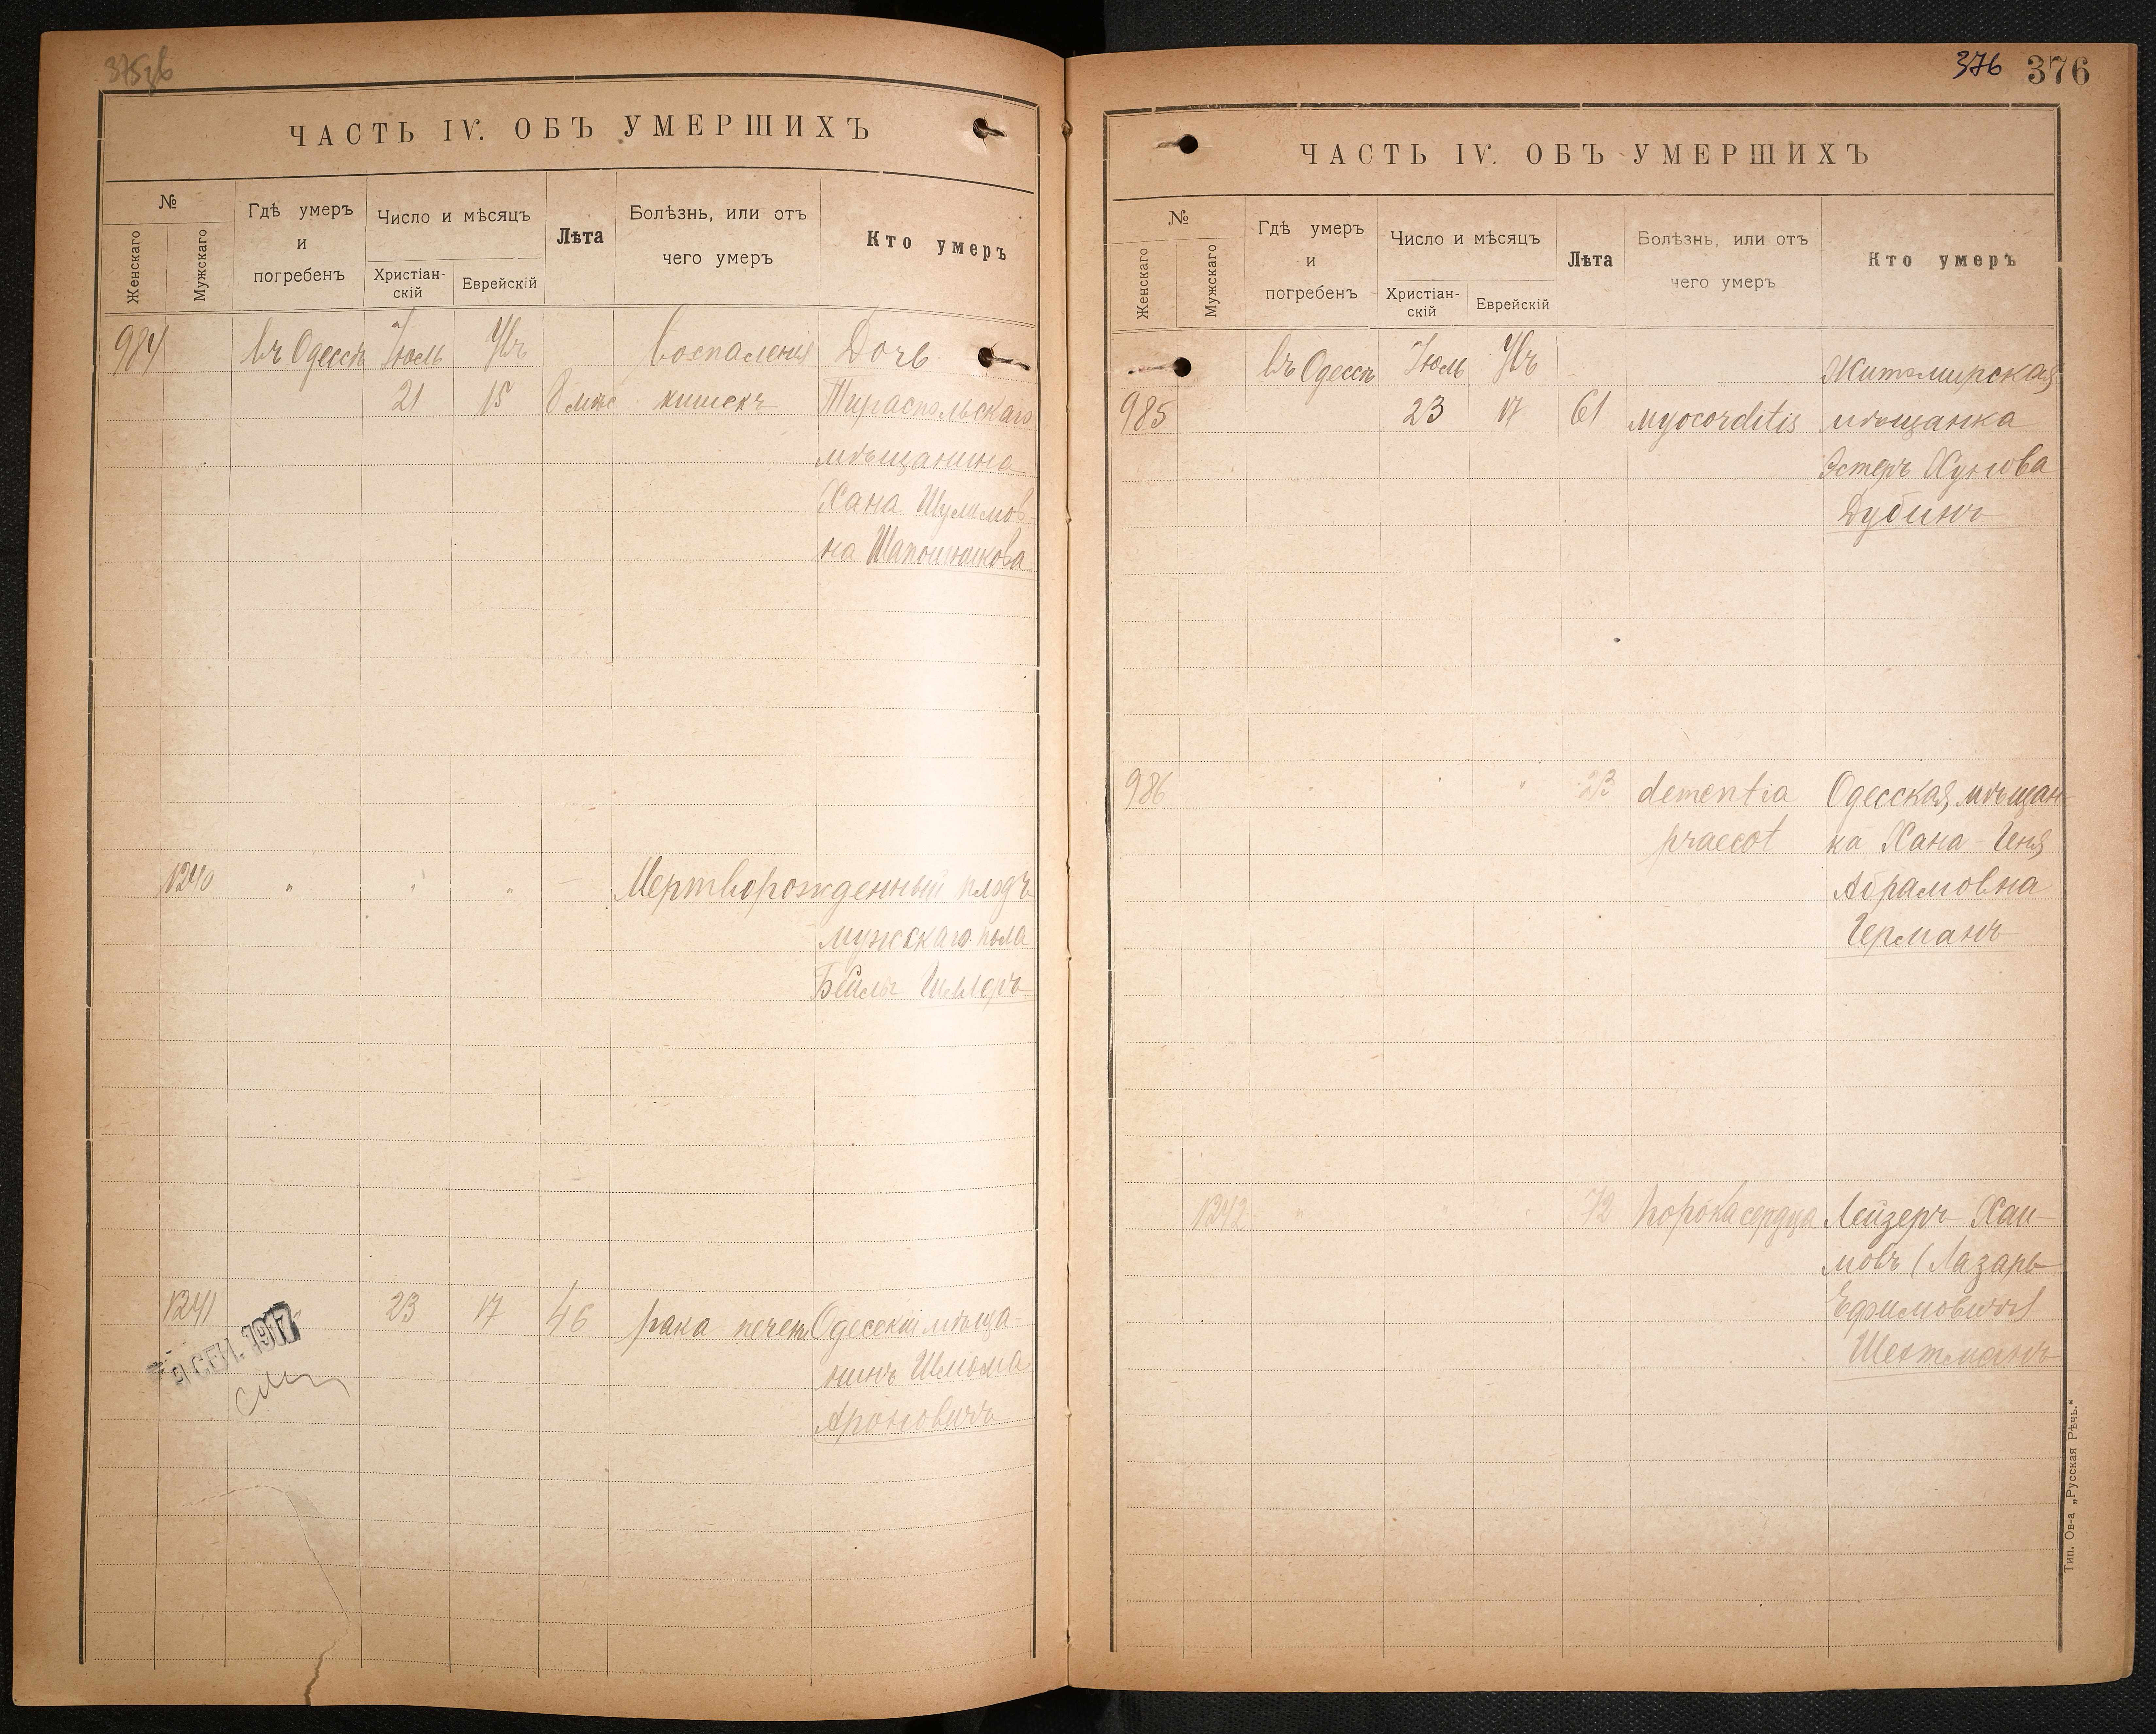 ЧАСТЬ IV. ОБЪ УМЕРШИХЪ
№
Женскаго
Мужскаго
Гдѣ умеръ
и
погребенъ
Число и мѣсяцъ
Христіан-
скій
Еврейскій
Лѣта
Болѣзнь, или отъ
чего умеръ
Кто умеръ
984 въ Одессѣ Іюль Увъ воспаленія Дочь
21 15 8 мѣс кишекъ Тираспольскаго
мѣщанина
Хана Шулимов-
на Шапошникова
1240 " " " — Мертворожденный плодъ
мужскаго пола
Бейлы
1241 23 17 46 рака печени Одесскій мѣща-
нинъ Шлёма
Ароновичъ
СЕН. 1917
376 376
ЧАСТЬ IV. ОБЪ УМЕРШИХЪ
№
Женскаго
Мужскаго
Гдѣ умеръ
и
погребенъ
Число и мѣсяцъ
Христіан-
скій
Еврейскій
Лѣта
Болѣзнь, или отъ
чего умеръ
Кто умеръ
въ Одессѣ Іюль Увъ Житомирская
985 23 17 61 myocorditis мѣщанка
Эстеръ Хунова
Дубинъ
986 " " dementia Одесская мѣщан-
praecot ка Хана Геня
Абрамовна
Германъ
1242 " " " 72 порока сердца Лейзеръ Хаи-
мовъ (Лазарь
Ефимовичъ)
Шехтманъ
Тип. Ов-а „Русская Рѣчь."